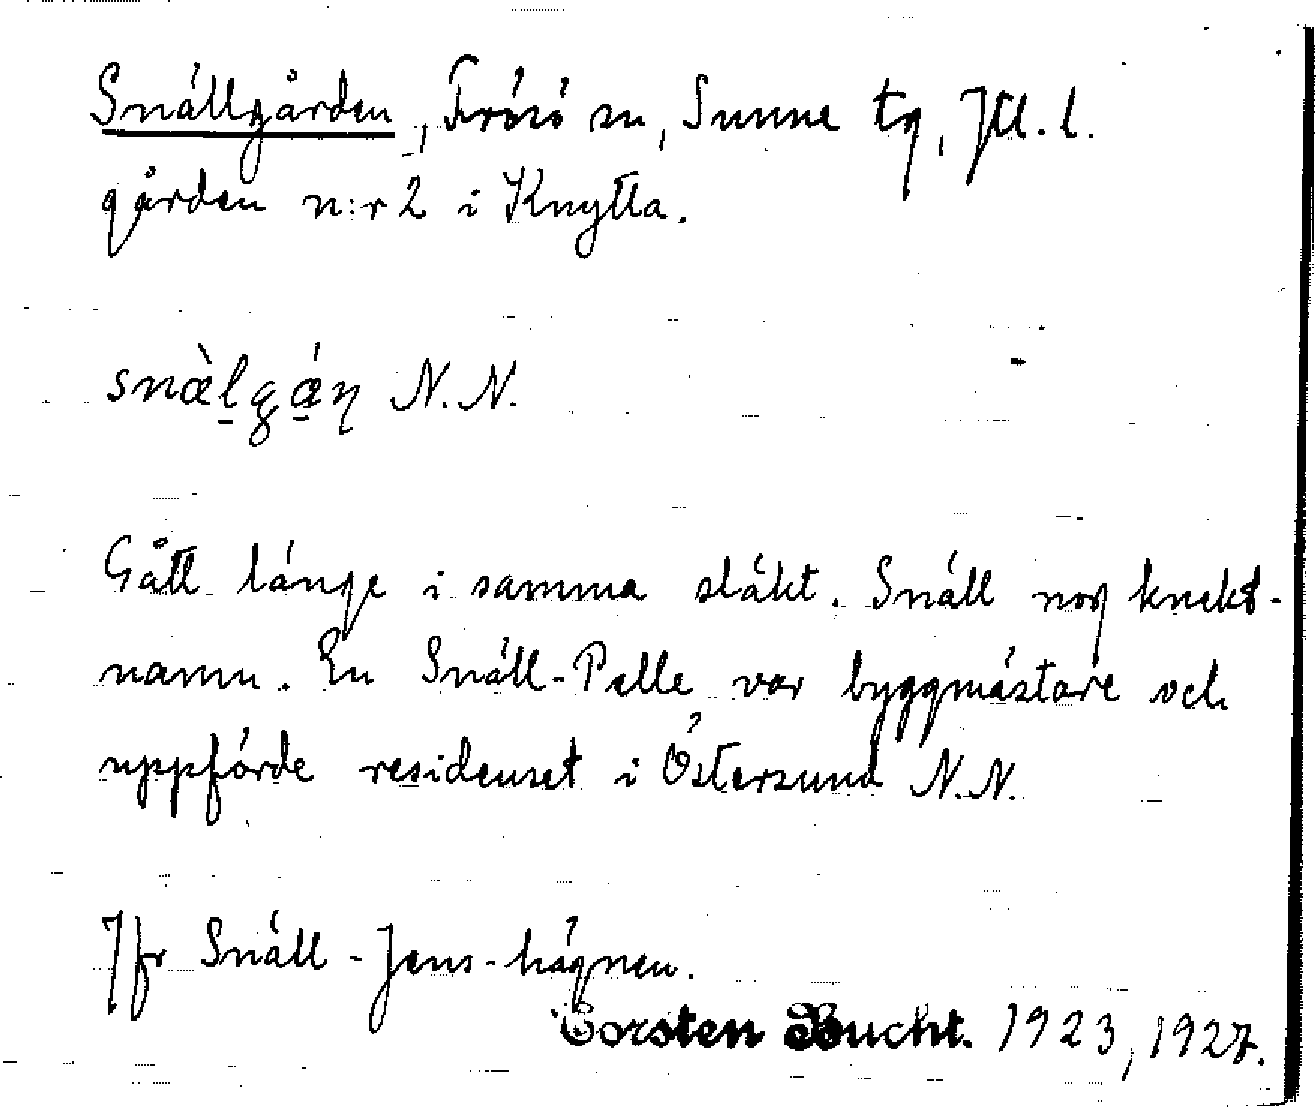 Snällgården, Frösö sn, Sunne tg, Jtl. l.
gården n:r 2 i Knytta.
snæ̀l̠gǽ̠ņ N.N.
Gått länge i samma släkt. Snäll nog knekt-
namn. En Snäll-Pelle var byggmästare och
uppförde residenset i Östersund N.N.
Jfr Snäll-Jens-hägnen.
Torsten Bucht. 1923, 1927.